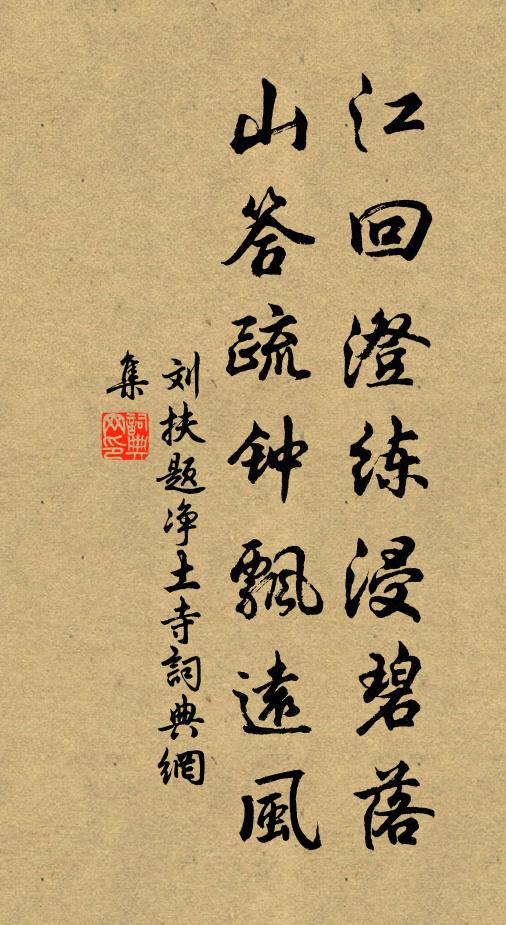 江回澄练浸碧落
山答疏钟飘遠風
刘扶题净土寺詞典網
集
詞典網印